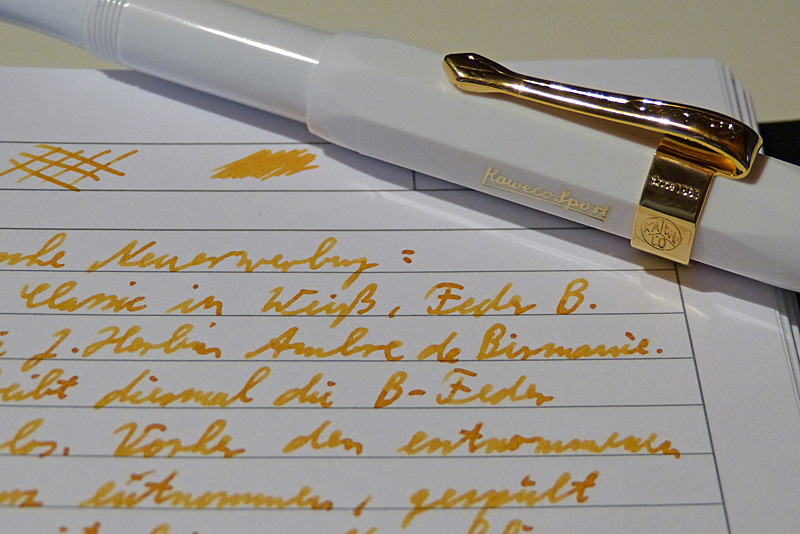 Kaweco Sport
KA WE
CO
Neuerwerbung:
Classic in Weiß, Feder B.
J. Herbin Ambre de Birmanie.
eibt diesmal die B-Feder
los. Vorher den entnommenen
entnommen, gespült